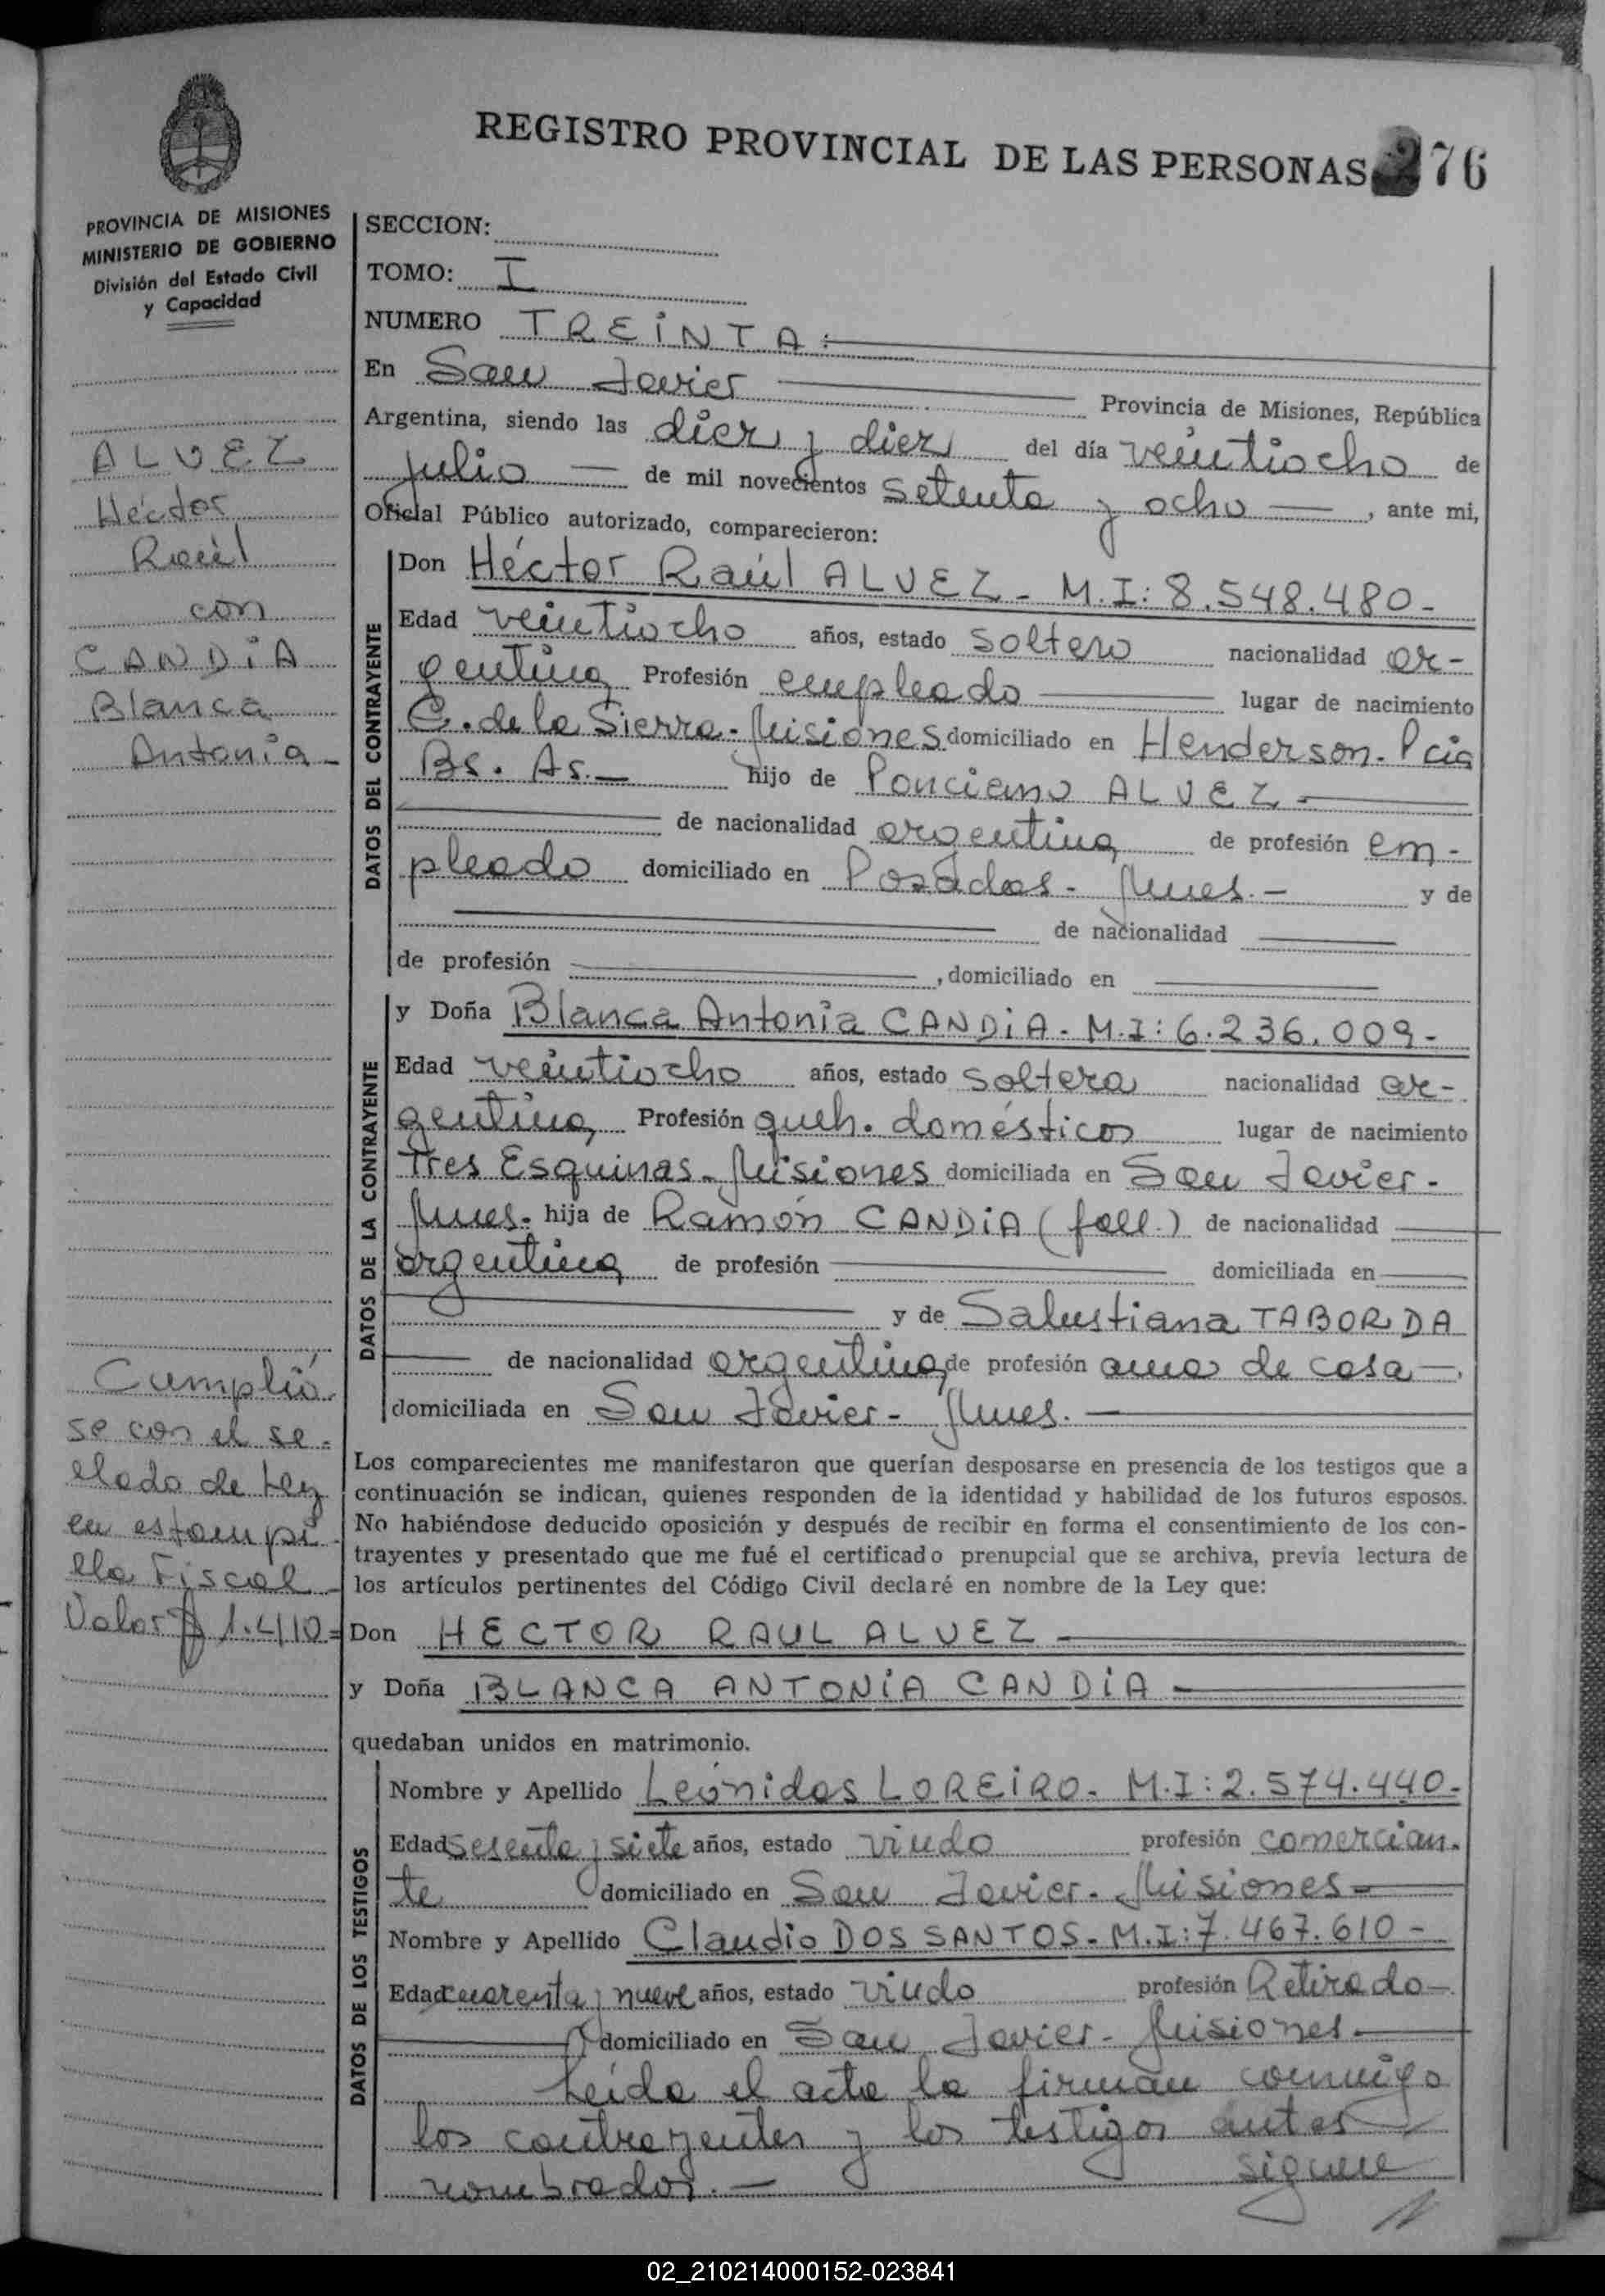 REGISTRO PROVINCIAL DE LAS PERSONAS 276
PROVINCIA DE MISIONES
MINISTERIO DE GOBIERNO
División del Estado Civil
y Capacidad
ALVEZ
Héctor
Raúl
con
CANDiA
Blanca
Antonia -
Cumplió
se con el se-
llado de Ley
en estampi
lla Fiscal -
Valor $ 1.410=
SECCION:
TOMO: I
NUMERO TREiNTA:
En San Javier Provincia de Misiones, República
Argentina, siendo las diez y diez del día veintiocho de
Julio — de mil novecientos setenta y ocho —, ante mi,
Oficial Público autorizado, comparecieron:
DATOS DEL CONTRAYENTE
Don Héctor Raúl ALVEZ - M.I: 8.548.480-
Edad veintiocho años, estado soltero nacionalidad ar-
gentina Profesión empleado lugar de nacimiento
C. de la Sierra - Misiones domiciliado en Henderson - Pcia
Bs. As. — hijo de Ponciano ALVEZ -
de nacionalidad argentina de profesión em-
pleado domiciliado en Posadas - Mnes. - y de
de nacionalidad
de profesión , domiciliado en
DATOS DE LA CONTRAYENTE
y Doña Blanca Antonia CANDiA - M.I: 6.236.009-
Edad veintiocho años, estado soltera nacionalidad ar-
gentina Profesión queh. domésticos lugar de nacimiento
Tres Esquinas - Misiones domiciliada en San Javier -
Mnes. hija de Ramón CANDiA (fall.) de nacionalidad
argentina de profesión domiciliada en
y de Salustiana TABORDA
de nacionalidad argentina de profesión ama de casa —.
domiciliada en San Javier - Mnes.
Los comparecientes me manifestaron que querían desposarse en presencia de los testigos que a
continuación se indican, quienes responden de la identidad y habilidad de los futuros esposos.
No habiéndose deducido oposición y después de recibir en forma el consentimiento de los con-
trayentes y presentado que me fué el certificado prenupcial que se archiva, previa lectura de
los artículos pertinentes del Código Civil declaré en nombre de la Ley que:
Don HECTOR RAUL ALVEZ
y Doña BLANCA ANTONiA CANDiA
quedaban unidos en matrimonio.
DATOS DE LOS TESTIGOS
Nombre y Apellido Leónidas LOREiRO - M.I: 2.574.440-
Edad sesenta y siete años, estado viudo profesión comercian-
te domiciliado en San Javier - Misiones -
Nombre y Apellido Claudio DOS SANTOS - M.I: 7.467.610 -
Edad cuarenta y nueve años, estado viudo profesión Retirado -
domiciliado en San Javier - Misiones.
Leída el acta la firman conmigo
los contrayentes y los testigos antes
nombrados. —
sigue
02_210214000152-023841